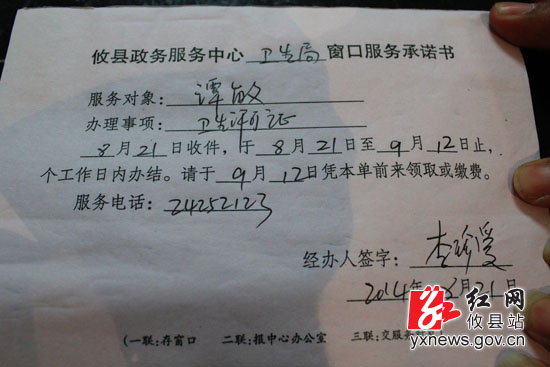 攸县政务服务中心 卫生局 窗口服务承诺书
服务对象: 谭敏
办理事项: 卫生许可证
8月21日收件,于8月21日至9月12日止,
个工作日内办结。请于9月12日凭本单前来领取或缴费。
服务电话: 24252123
经办人签字: 李
2014年8月21日
(一联:存窗口 二联:报中心办公室 三联:交服务
红网
攸县站
yxnews.gov.cn